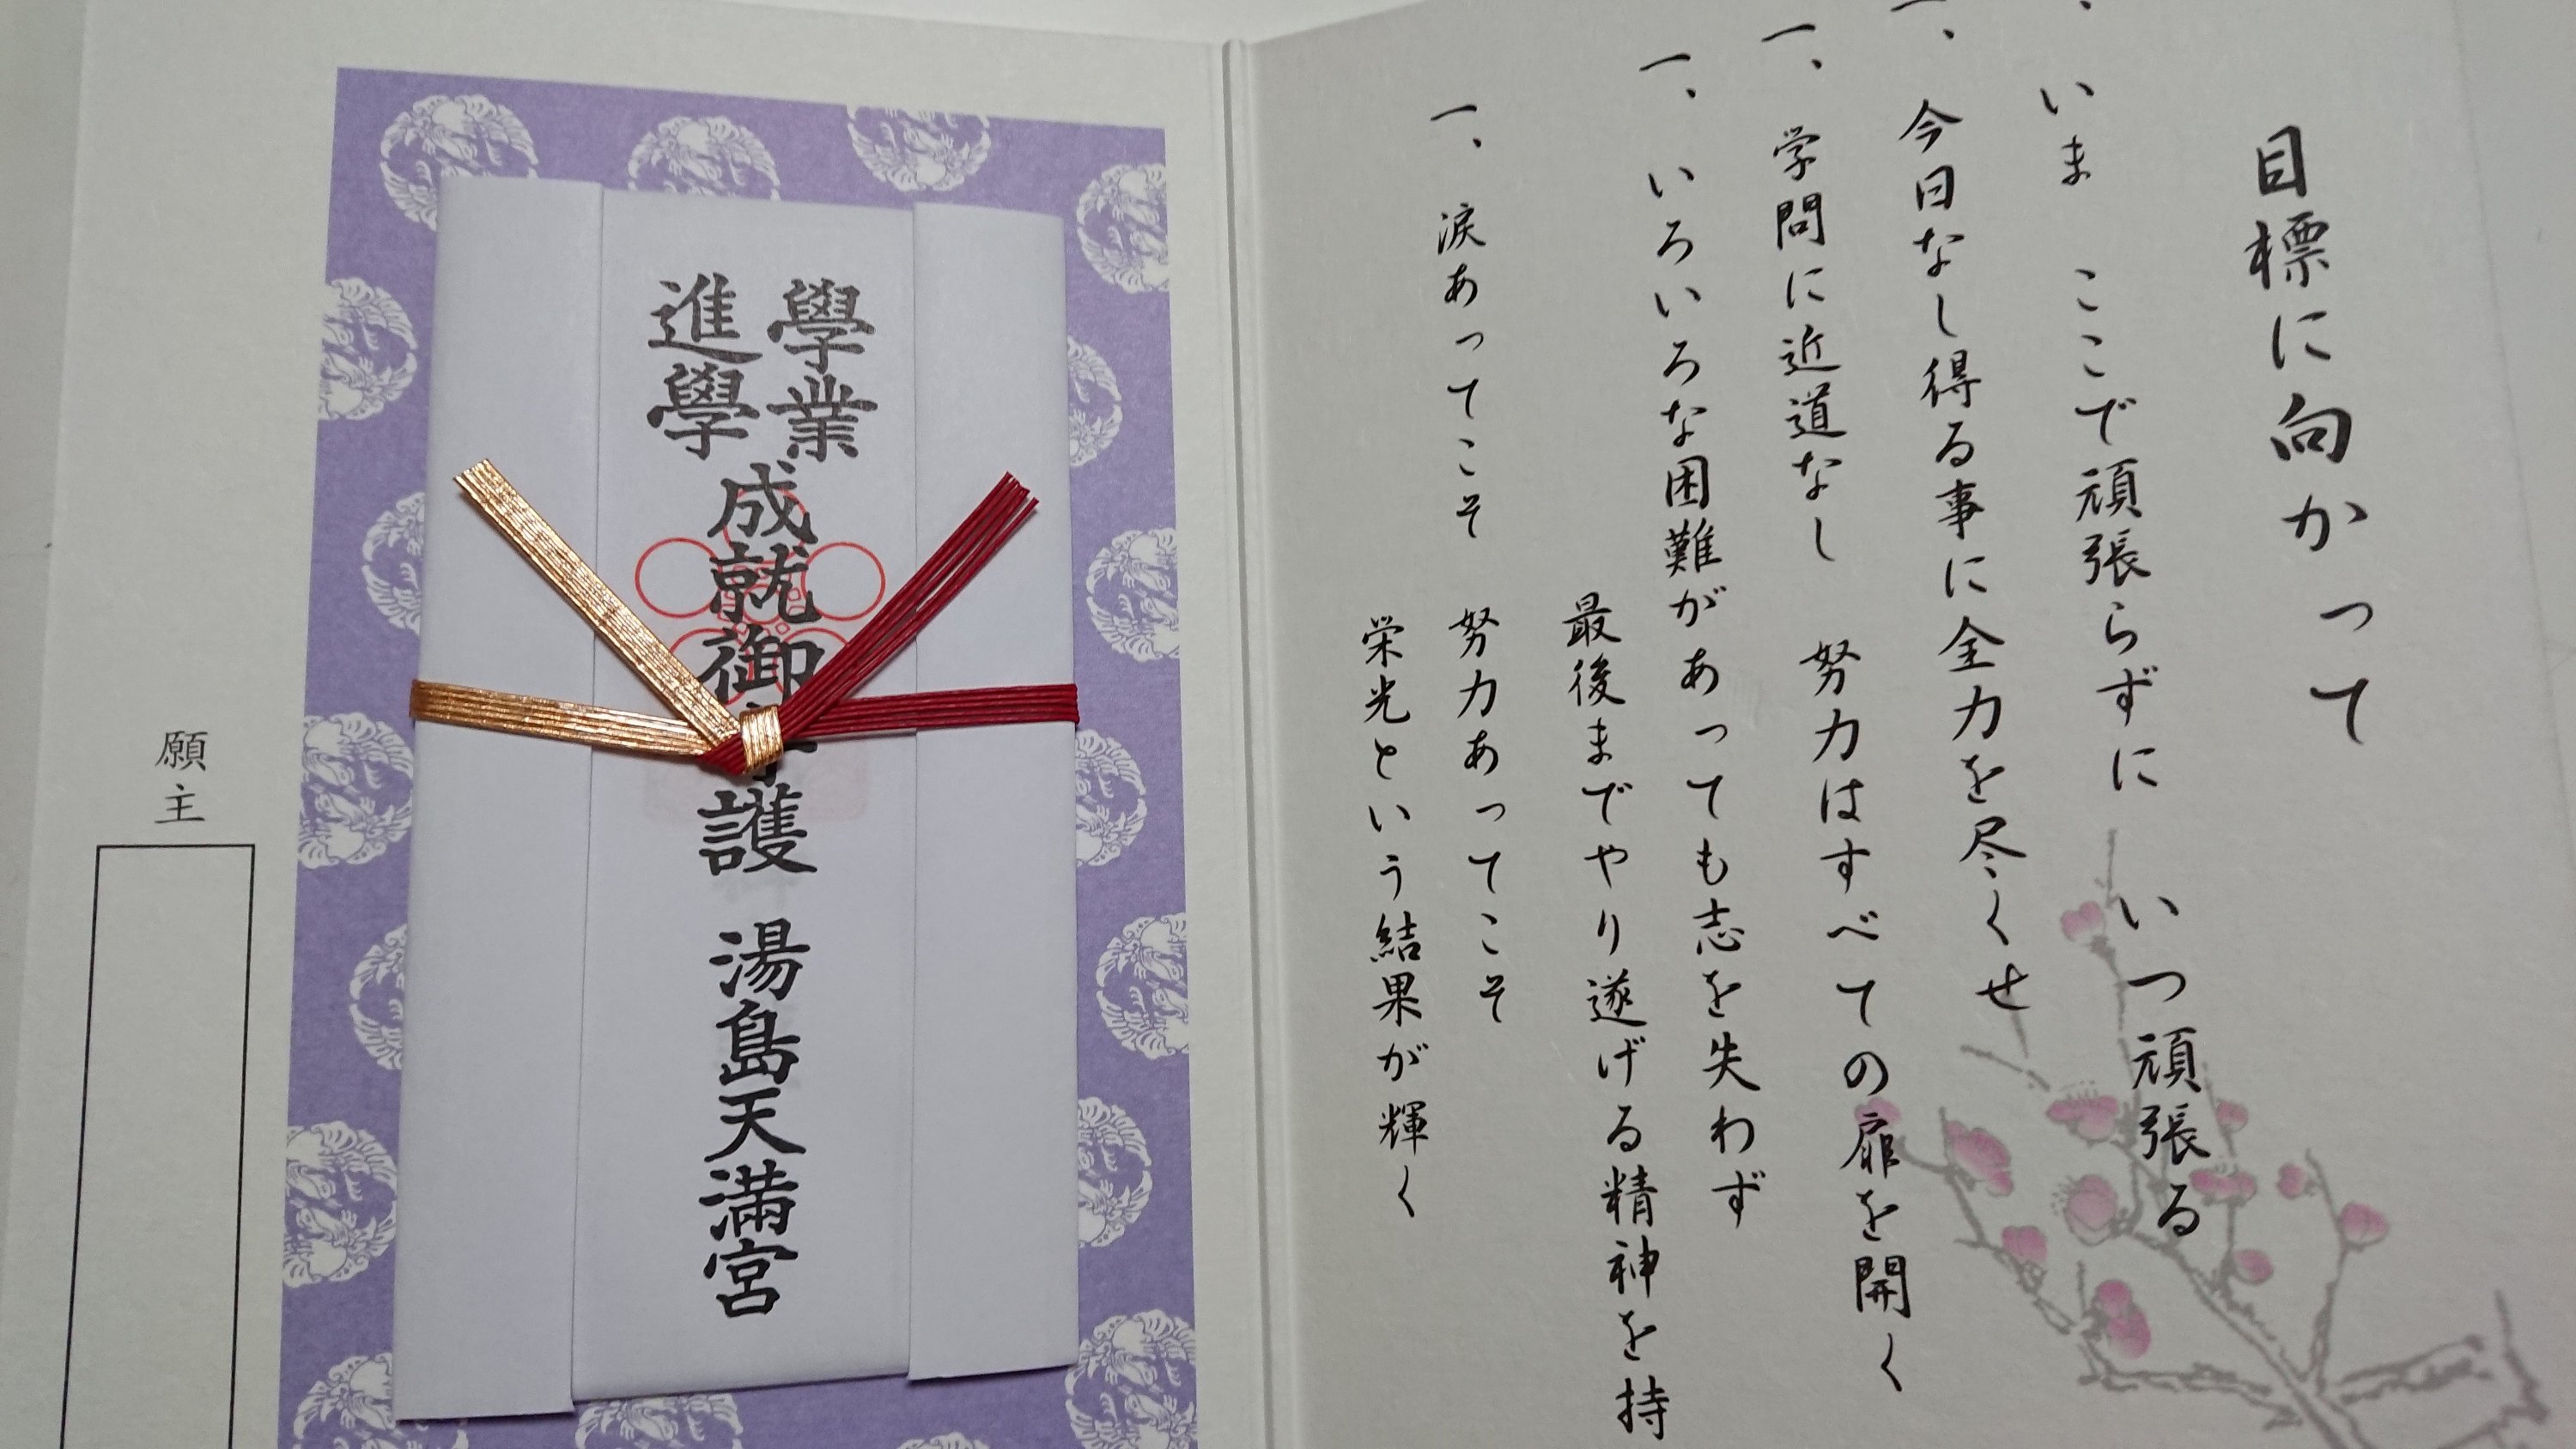 目標に向かって
いま ここで頑張らずに いつ頑張る
一、今日なし得る事に全力を尽くせ
一、学問に近道なし 努力はすべての扉を開く
一、いろいろな困難があっても志を失わず
最後までやり遂げる精神を持
一、涙あってこそ 努力あってこそ
栄光という結果が輝く
學業
進學
成就御守護 湯島天満宮
願主